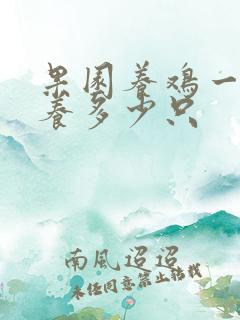 果園養鸡一
養多少只
南風迢迢
未经同意禁止转载